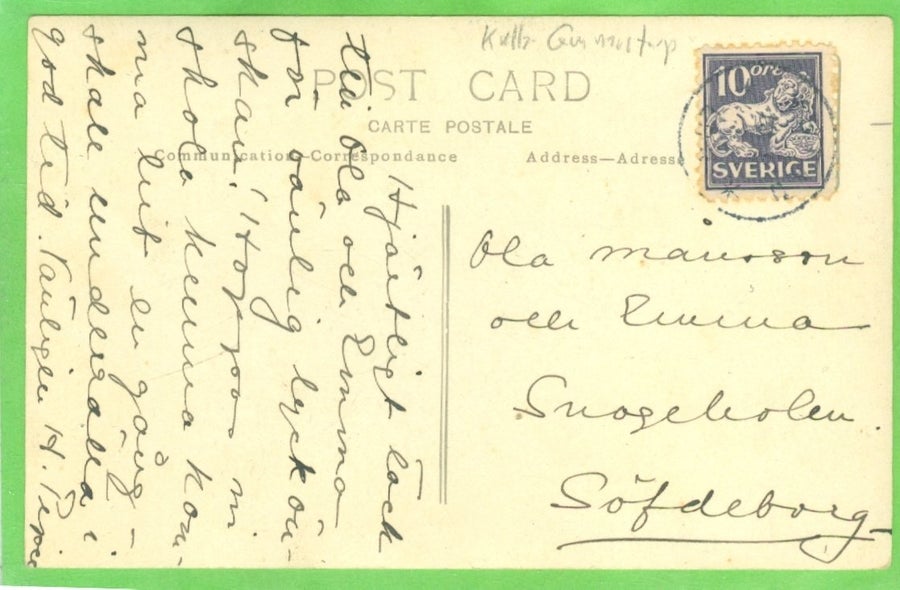 Kulla Gunnarstorp
POST CARD
CARTE POSTALE
Communication—Correspondance
Address—Adresse
10 öre
SVERIGE
Hjärtligt tack
till Ola och Emma
för vänlig lyckön-
skan. Hoppas ni
skola kunna kom-
ma hit en gång –
skall underrätta i
god tid. Vänligen H.
Ola Månsson
och Emma
Snogeholm.
Söfdeborg